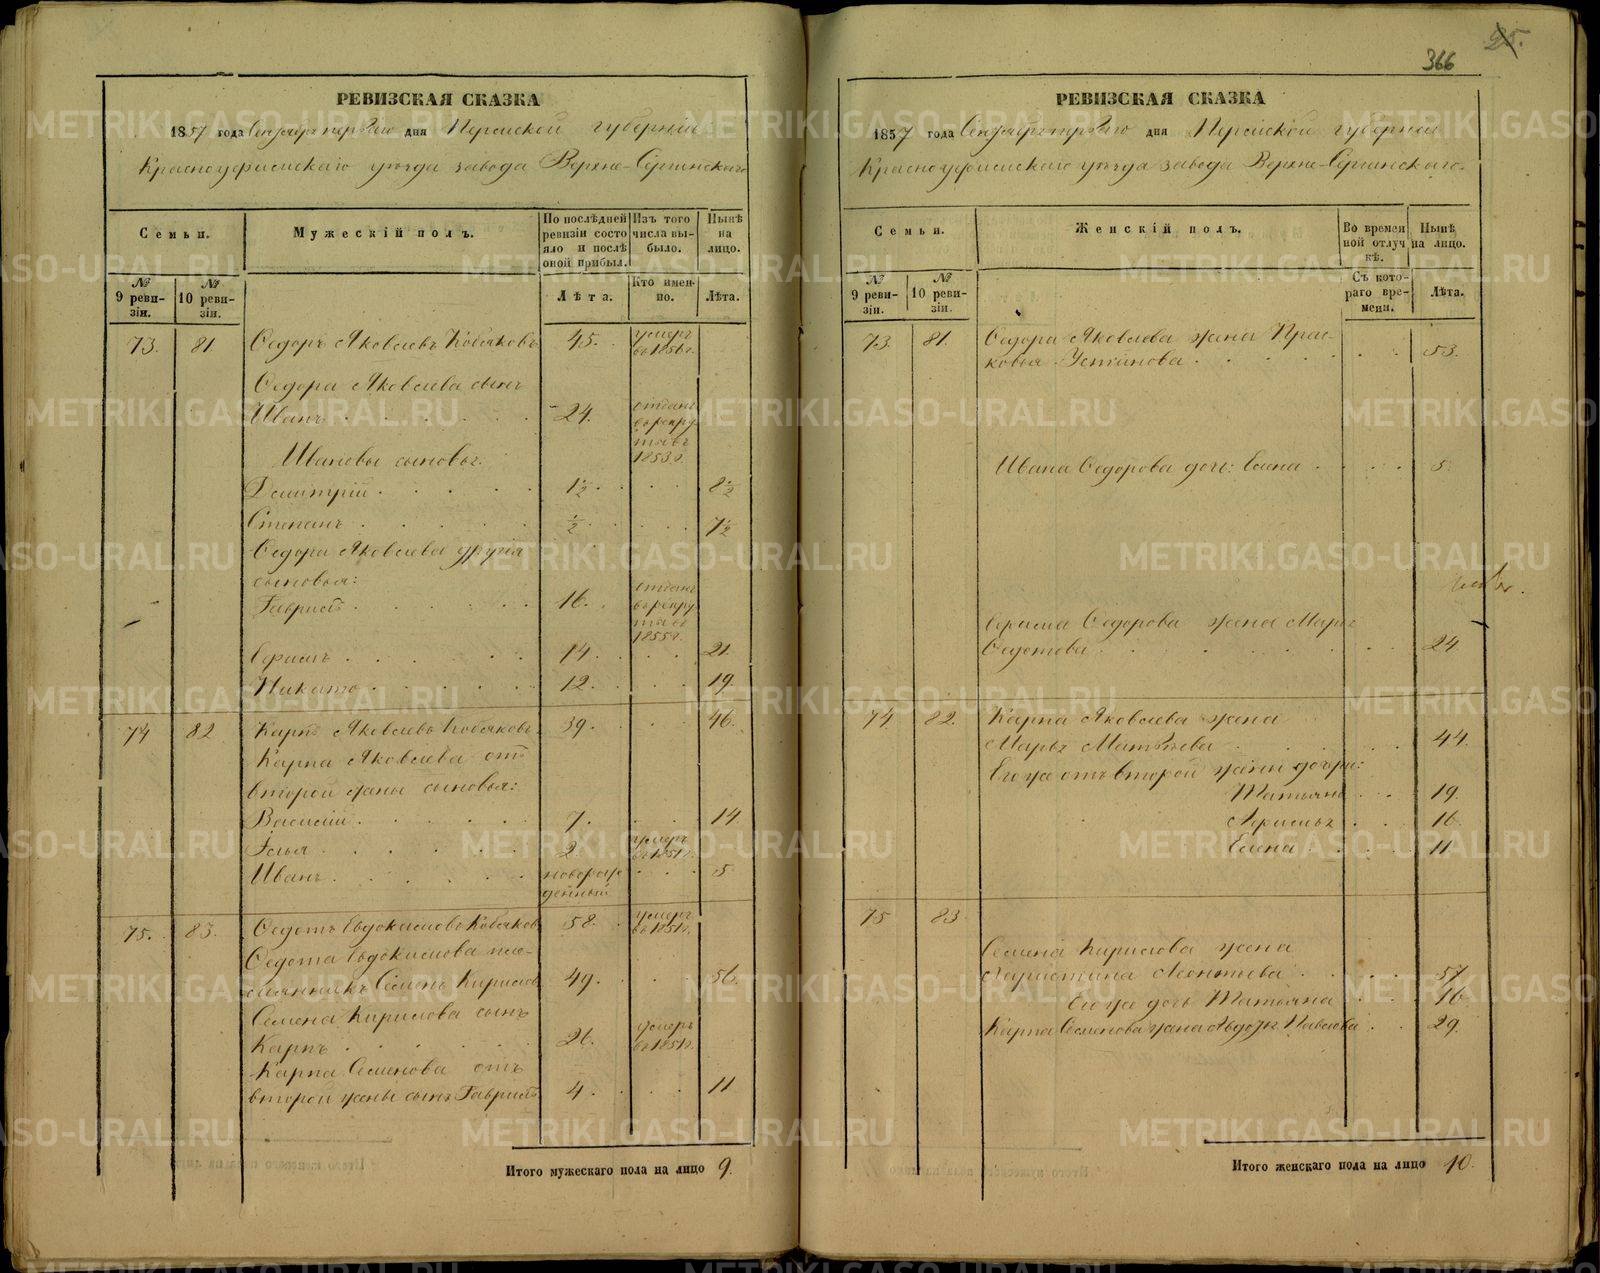 РЕВИЗСКАЯ СКАЗКА
1857 года Сентября первого дня Пермской губерніи
Красноуфимскаго уѣзда завода Верхне-Сергинскаго
Семьи.
Мужескій полъ.
По послѣдней ревизіи состояло и послѣ оной прибыл.
Изъ того числа выбыло.
Нынѣ на лицо.
№ 9 ревизіи.
№ 10 ревизіи.
Лѣта.
Кто именно.
Лѣта.
73. 81. Ѳедоръ Яковлевъ Кобяковъ 45. умеръ въ 1856 г.
Ѳедора Яковлева сынъ
Иванъ 24. отданъ въ рекруты въ 1853 г.
Ивановы сыновья:
Дмитрій 1½ 8½
Степанъ ½ 7½
Ѳедора Яковлева другія
сыновья:
Гаврилъ 16. отданъ въ рекруты въ 1855 г.
14. 21.
Никита 12. 19.
74 82. Карпъ Яковлевъ Кобяковъ 39. 46.
Карпа Яковлева отъ
второй жены сыновья:
Василій 7. 14
Илья 2. умеръ въ 1851 г.
Иванъ новорожденный 5
75. 83. Ѳедотъ Евдокимовъ Кобяковъ 58. умеръ въ 1851 г.
Ѳедота Евдокимова племянникъ Семенъ Кириловъ 49. 56.
Семена Кирилова сынъ
Карпъ 26. умеръ въ 1851 г.
Карпа Семенова отъ
второй жены сынъ Гаврилъ 4. 11
Итого мужескаго пола на лицо 9.
25.
366
РЕВИЗСКАЯ СКАЗКА
1857 года Сентября первого дня Пермской губерніи
Красноуфимскаго уѣзда завода Верхне-Сергинскаго.
Семьи.
Женскій полъ.
Во временной отлучкѣ.
Нынѣ на лицо.
№ 9 ревизіи.
№ 10 ревизіи.
Съ котораго времени.
Лѣта.
73. 81. Ѳедора Яковлева жена Прасковья Устинова 53.
Ивана Ѳедорова дочь: Елена 5.
Ѳедорова жена Марья
Ѳедотова 24
74 82. Карпа Яковлева жена
Марья Матвѣева 44.
Его же отъ второй жены дочери:
Татьяна 19.
16
Елена 11
75 83
Семена Кирилова жена
Христина Леонтьева 57
Его же дочь Татьяна 16.
Карпа Семенова жена Авдотья Павлова 29.
Итого женскаго пола на лицо 10.
METRIKI.GASO-URAL.RU